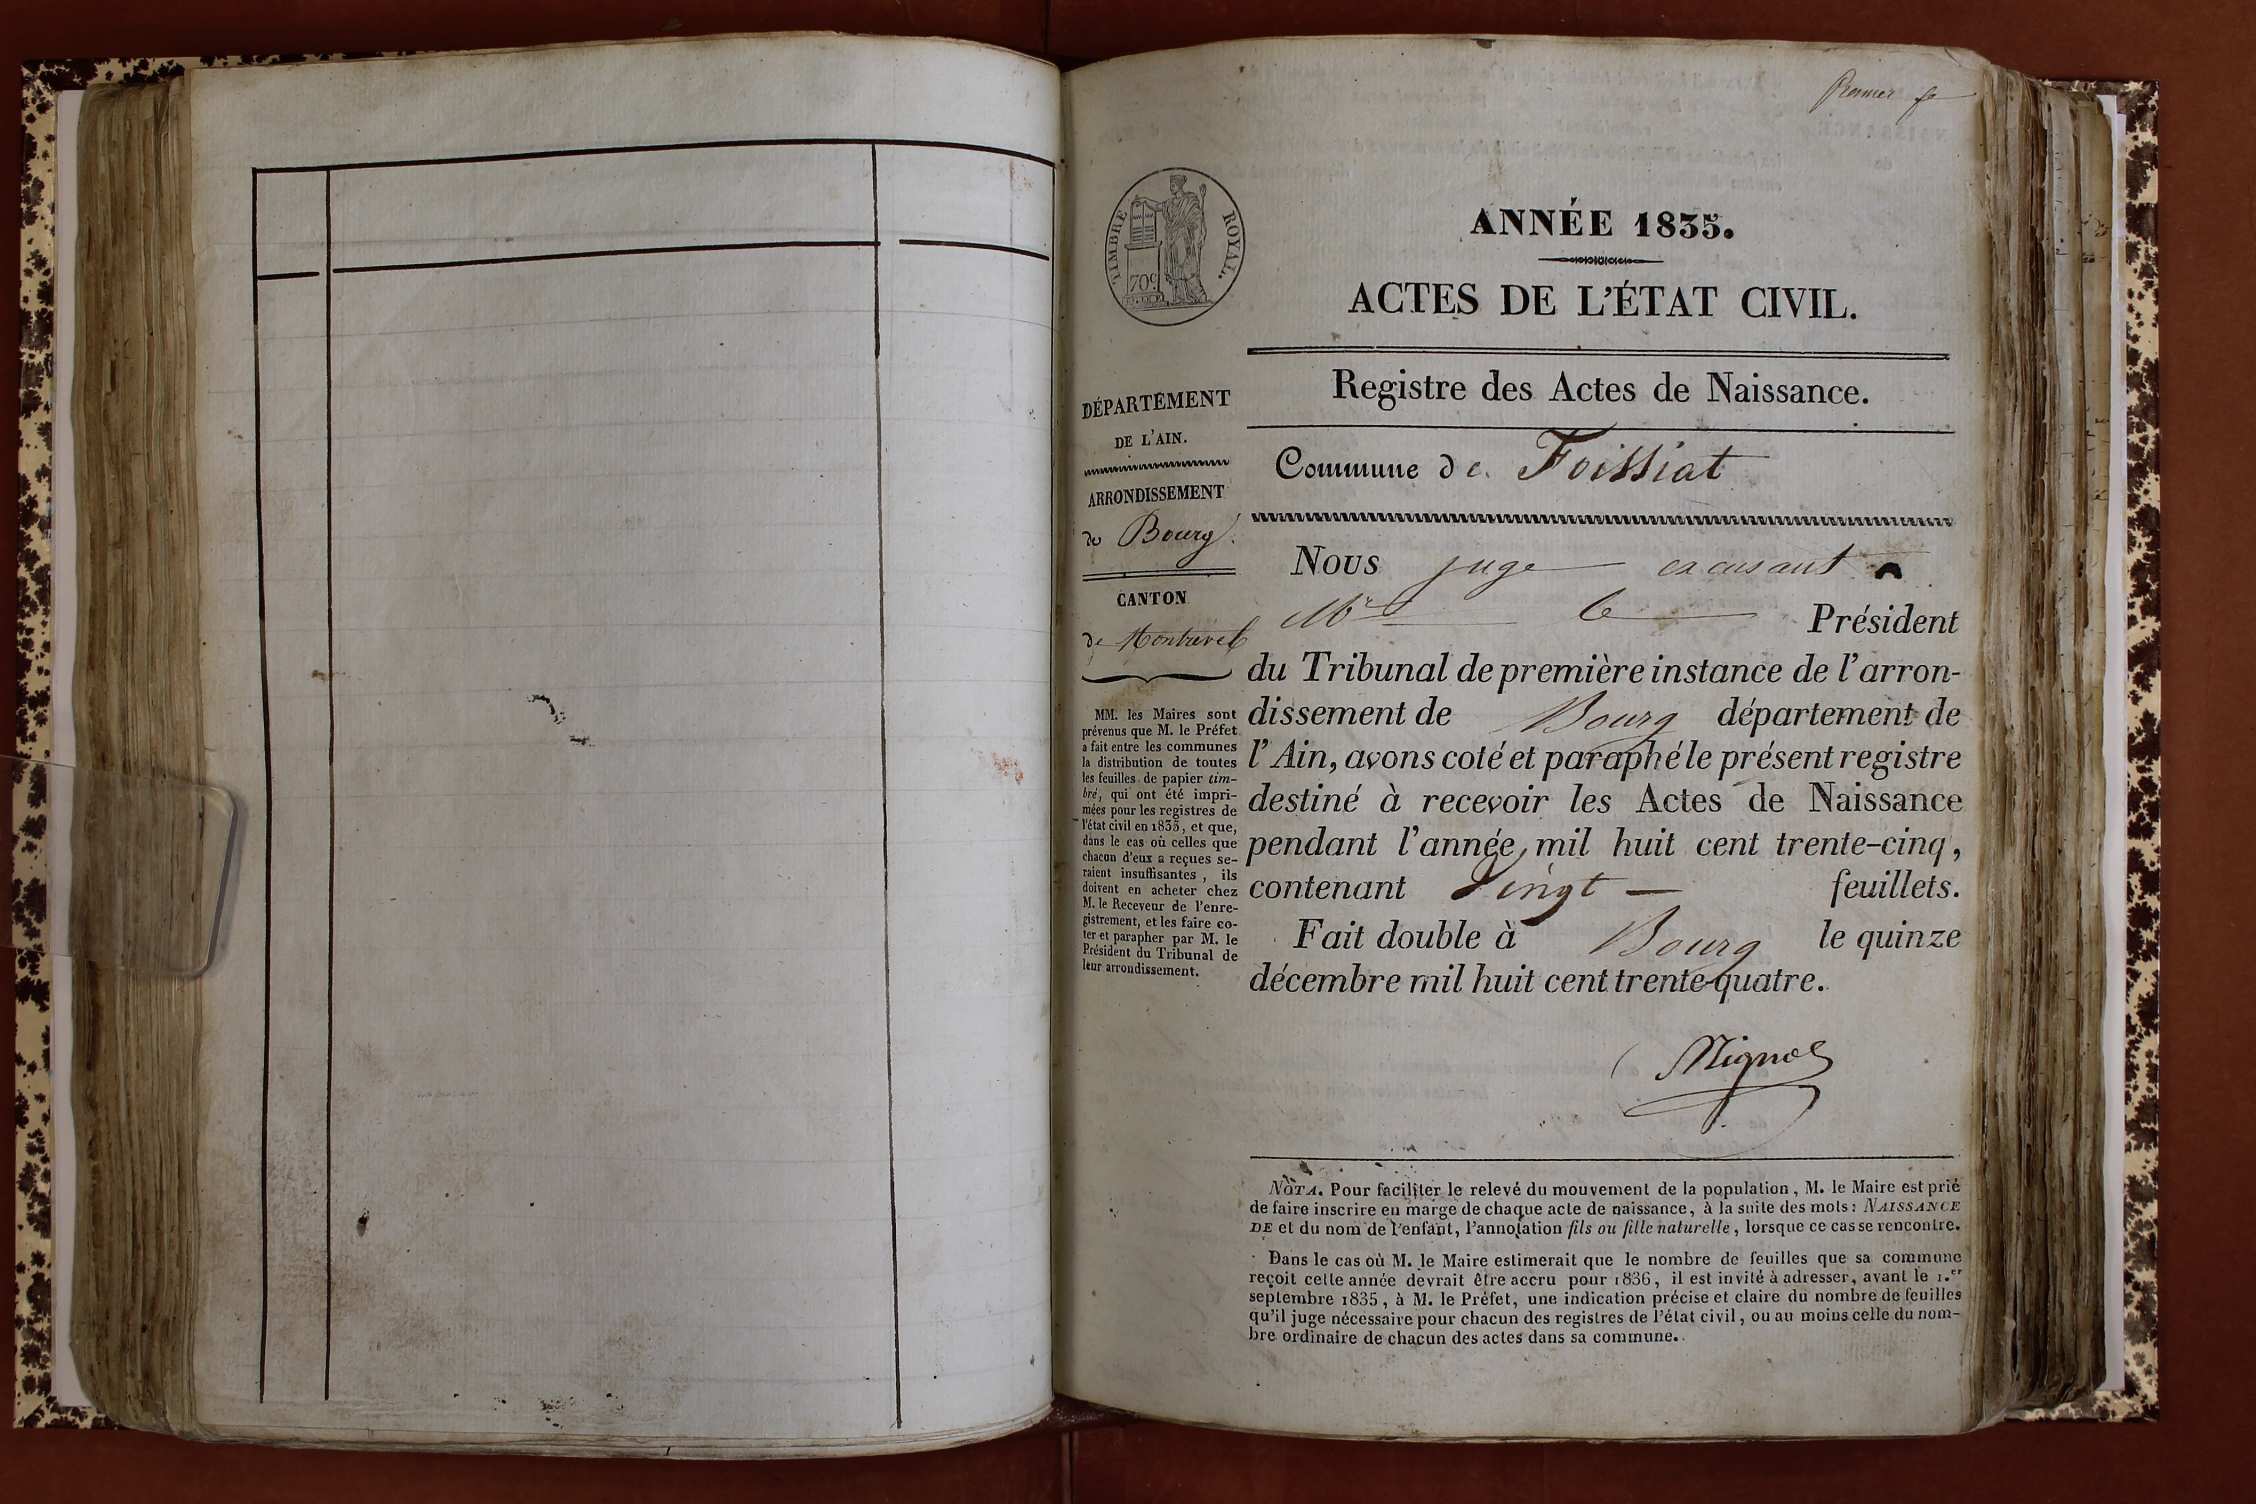 Premier fo
TIMBRE ROYAL.
70c
ANNÉE 1835.
ACTES DE L'ÉTAT CIVIL.
Registre des Actes de Naissance.
Commune de Foissiat
DÉPARTEMENT
DE L'AIN.
ARRONDISSEMENT
de Bourg.
CANTON
de Montrevel
MM. les Maires sont
prévenus que M. le Préfet
a fait entre les communes
la distribution de toutes
les feuilles de papier tim-
bré, qui ont été impri-
mées pour les registres de
l'état civil en 1835, et que,
dans le cas où celles que
chacun d'eux a reçues se-
raient insuffisantes, ils
doivent en acheter chez
M. le Receveur de l'enre-
gistrement, et les faire co-
ter et parapher par M. le
Président du Tribunal de
leur arrondissement.
Nous juge
Mr le Président
du Tribunal de première instance de l'arron-
dissement de Bourg département de
l'Ain, avons coté et paraphé le présent registre
destiné à recevoir les Actes de Naissance
pendant l'année mil huit cent trente-cinq,
contenant Vingt feuillets.
Fait double à Bourg le quinze
décembre mil huit cent trente-quatre.
NOTA. Pour faciliter le relevé du mouvement de la population, M. le Maire est prié
de faire inscrire en marge de chaque acte de naissance, à la suite des mots: NAISSANCE
DE et du nom de l'enfant, l'annotation fils ou fille naturelle, lorsque ce cas se rencontre.
Dans le cas où M. le Maire estimerait que le nombre de feuilles que sa commune
reçoit cette année devrait être accru pour 1836, il est invité à adresser, avant le 1.er
septembre 1835, à M. le Préfet, une indication précise et claire du nombre de feuilles
qu'il juge nécessaire pour chacun des registres de l'état civil, ou au moins celle du nom-
bre ordinaire de chacun des actes dans sa commune.